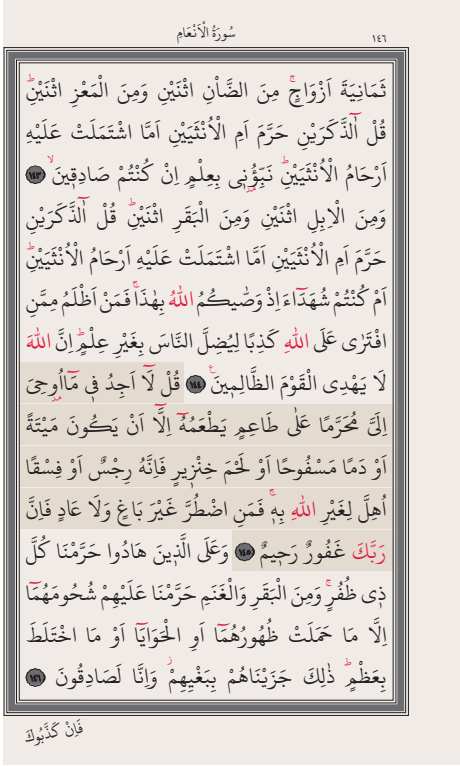 سُورَةُ الْاَنْعَامِ
١٤٦
ثَمَانِيَةَ اَزْوَاجٍۚ مِنَ الضَّاْنِ اثْنَيْنِ وَمِنَ الْمَعْزِ اثْنَيْنِۜ
قُلْ آٰلذَّكَرَيْنِ حَرَّمَ اَمِ الْاُنْثَيَيْنِ اَمَّا اشْتَمَلَتْ عَلَيْهِ
اَرْحَامُ الْاُنْثَيَيْنِۜ نَبِّؤُ۫نٖي بِعِلْمٍ اِنْ كُنْتُمْ صَادِقٖينَۙ ﴿١٤٣﴾
وَمِنَ الْاِبِلِ اثْنَيْنِ وَمِنَ الْبَقَرِ اثْنَيْنِۜ قُلْ آٰلذَّكَرَيْنِ
حَرَّمَ اَمِ الْاُنْثَيَيْنِ اَمَّا اشْتَمَلَتْ عَلَيْهِ اَرْحَامُ الْاُنْثَيَيْنِۜ
اَمْ كُنْتُمْ شُهَدَٓاءَ اِذْ وَصّٰيكُمُ اللّٰهُ بِهٰذَاۚ فَمَنْ اَظْلَمُ مِمَّنِ
افْتَرٰى عَلَى اللّٰهِ كَذِبًا لِيُضِلَّ النَّاسَ بِغَيْرِ عِلْمٍۜ اِنَّ اللّٰهَ
لَا يَهْدِى الْقَوْمَ الظَّالِمٖينَۚ ﴿١٤٤﴾ قُلْ لَٓا اَجِدُ فٖي مَٓا اُو۫حِيَ
اِلَيَّ مُحَرَّمًا عَلٰى طَاعِمٍ يَطْعَمُهُٓ اِلَّٓا اَنْ يَكُونَ مَيْتَةً
اَوْ دَمًا مَسْفُوحًا اَوْ لَحْمَ خِنْزٖيرٍ فَاِنَّهُ رِجْسٌ اَوْ فِسْقًا
اُهِلَّ لِغَيْرِ اللّٰهِ بِهٖۚ فَمَنِ اضْطُرَّ غَيْرَ بَاغٍ وَلَا عَادٍ فَاِنَّ
رَبَّكَ غَفُورٌ رَحٖيمٌ ﴿١٤٥﴾ وَعَلَى الَّذٖينَ هَادُوا حَرَّمْنَا كُلَّ
ذٖي ظُفُرٍۚ وَمِنَ الْبَقَرِ وَالْغَنَمِ حَرَّمْنَا عَلَيْهِمْ شُحُومَهُمَٓا
اِلَّا مَا حَمَلَتْ ظُهُورُهُمَٓا اَوِ الْحَوَايَٓا اَوْ مَا اخْتَلَطَ
بِعَظْمٍۜ ذٰلِكَ جَزَيْنَاهُمْ بِبَغْيِهِمْۘ وَاِنَّا لَصَادِقُونَ ﴿١٤٦﴾
فَاِنْ كَذَّبُوكَ